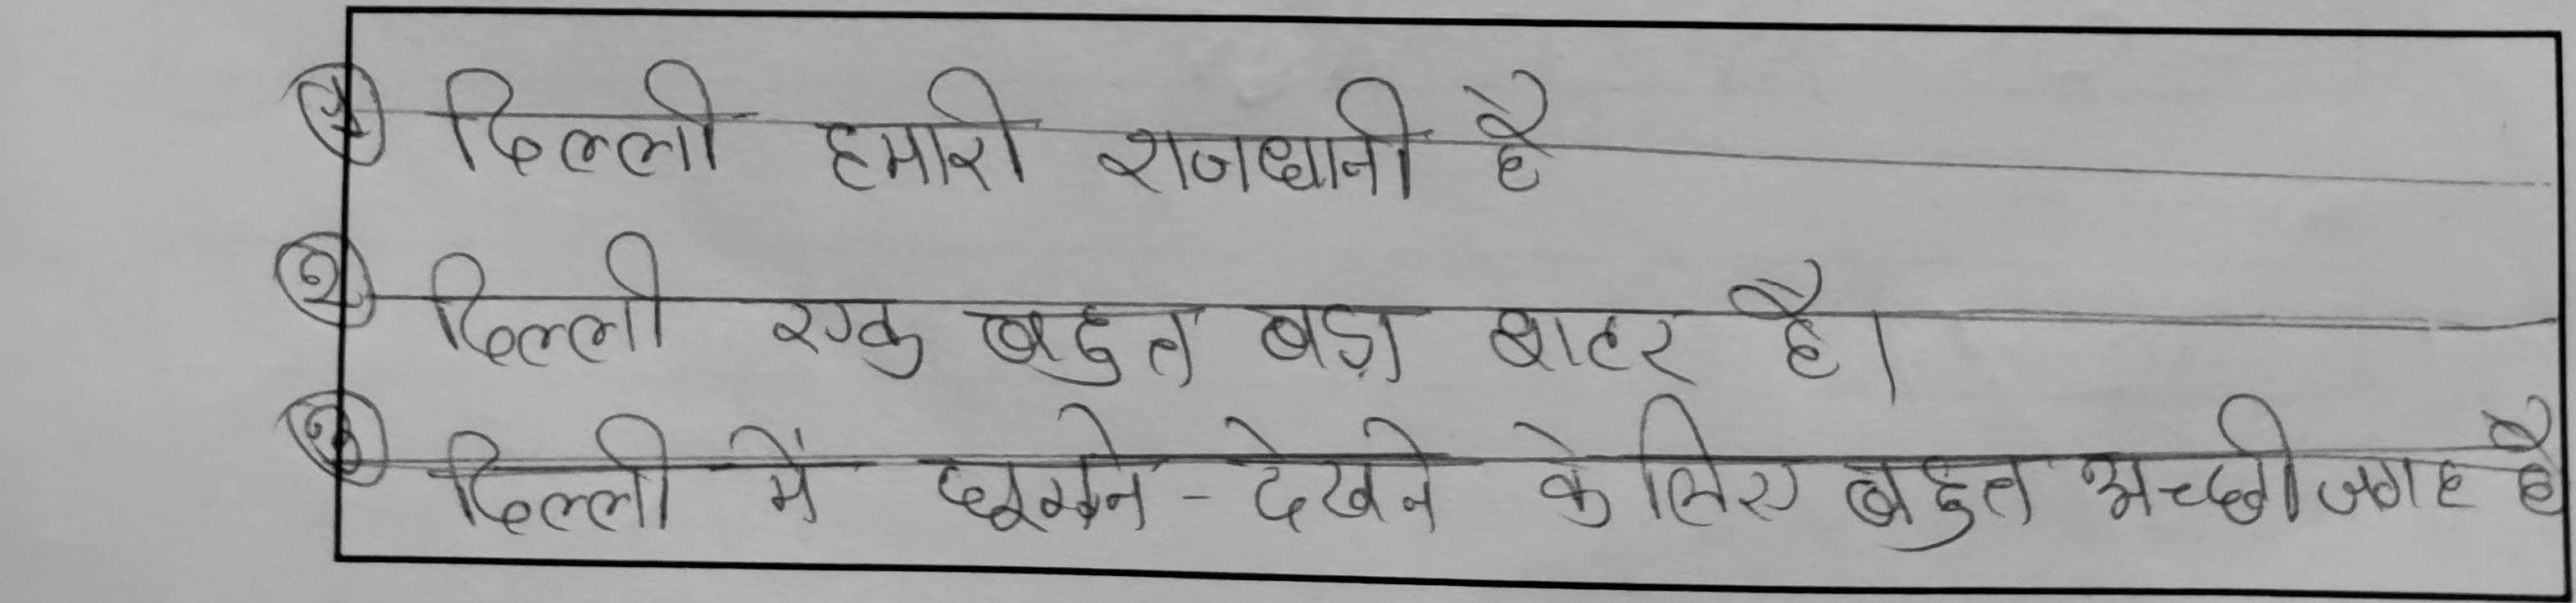 ① दिल्ली हमारी राजधानी है
② दिल्ली एक बहुत बड़ा शहर है।
③ दिल्ली में घूमने - देखने के लिए बहुत अच्छी जगह है